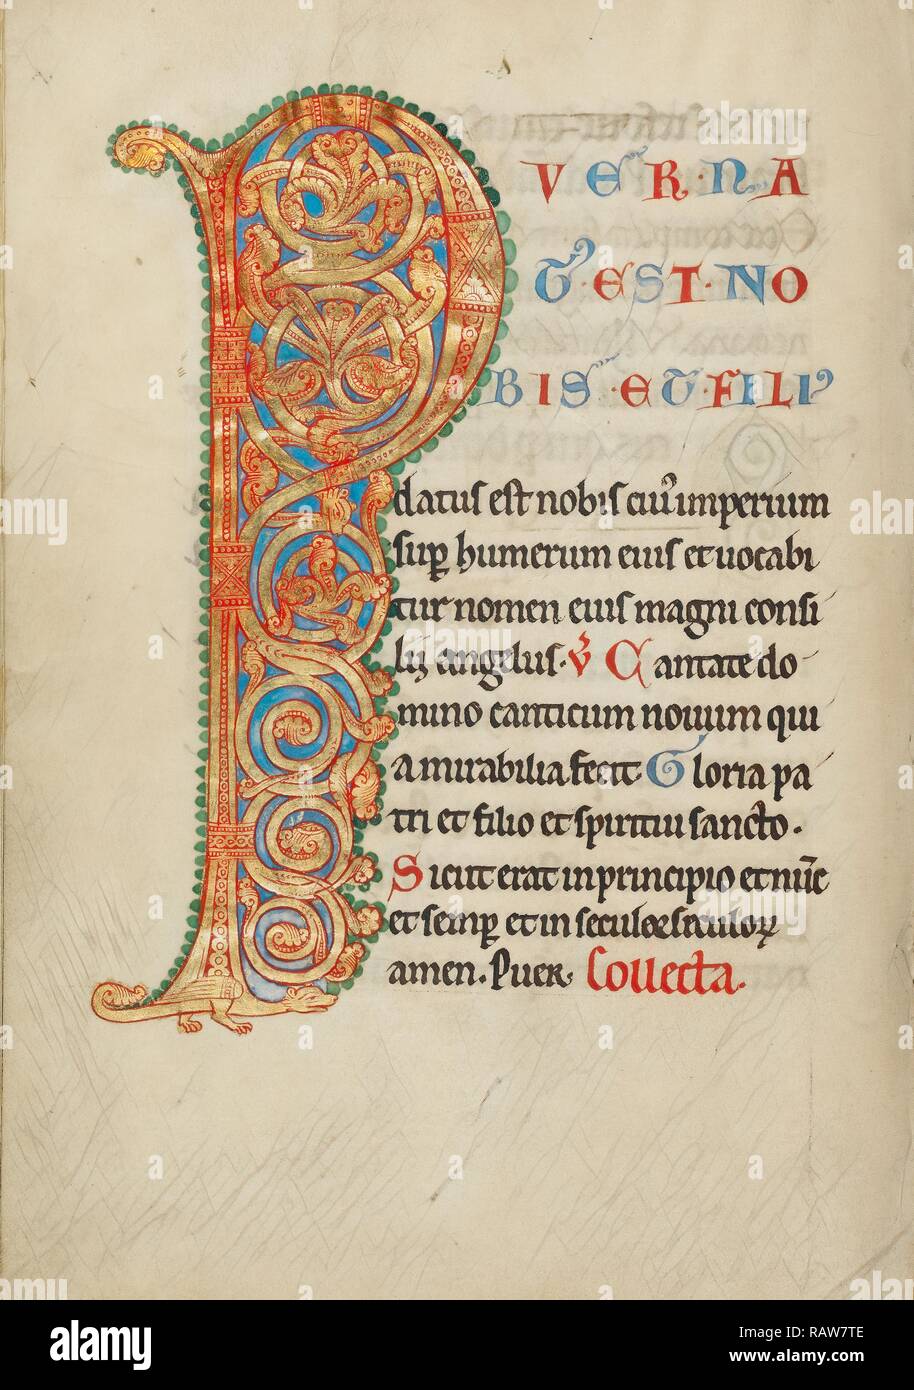 PVER·NA
T·EST·NO
BIS·ET·FILI
datus est nobis cuiꝰ imperium
suꝑ humerum eius et uocabi
tur nomen eius magni consi
lij angelus· V̄ Cantate do
mino canticum nouum qui
a mirabilia fecit· Gloria pa
tri et filio et spiritui sancto·
Sicut erat in principio et nūc
et semꝑ et in seculoꝝ seculoꝝ
amen. Puer· Collecta·
alamy
Image ID: RAW7TE
www.alamy.com